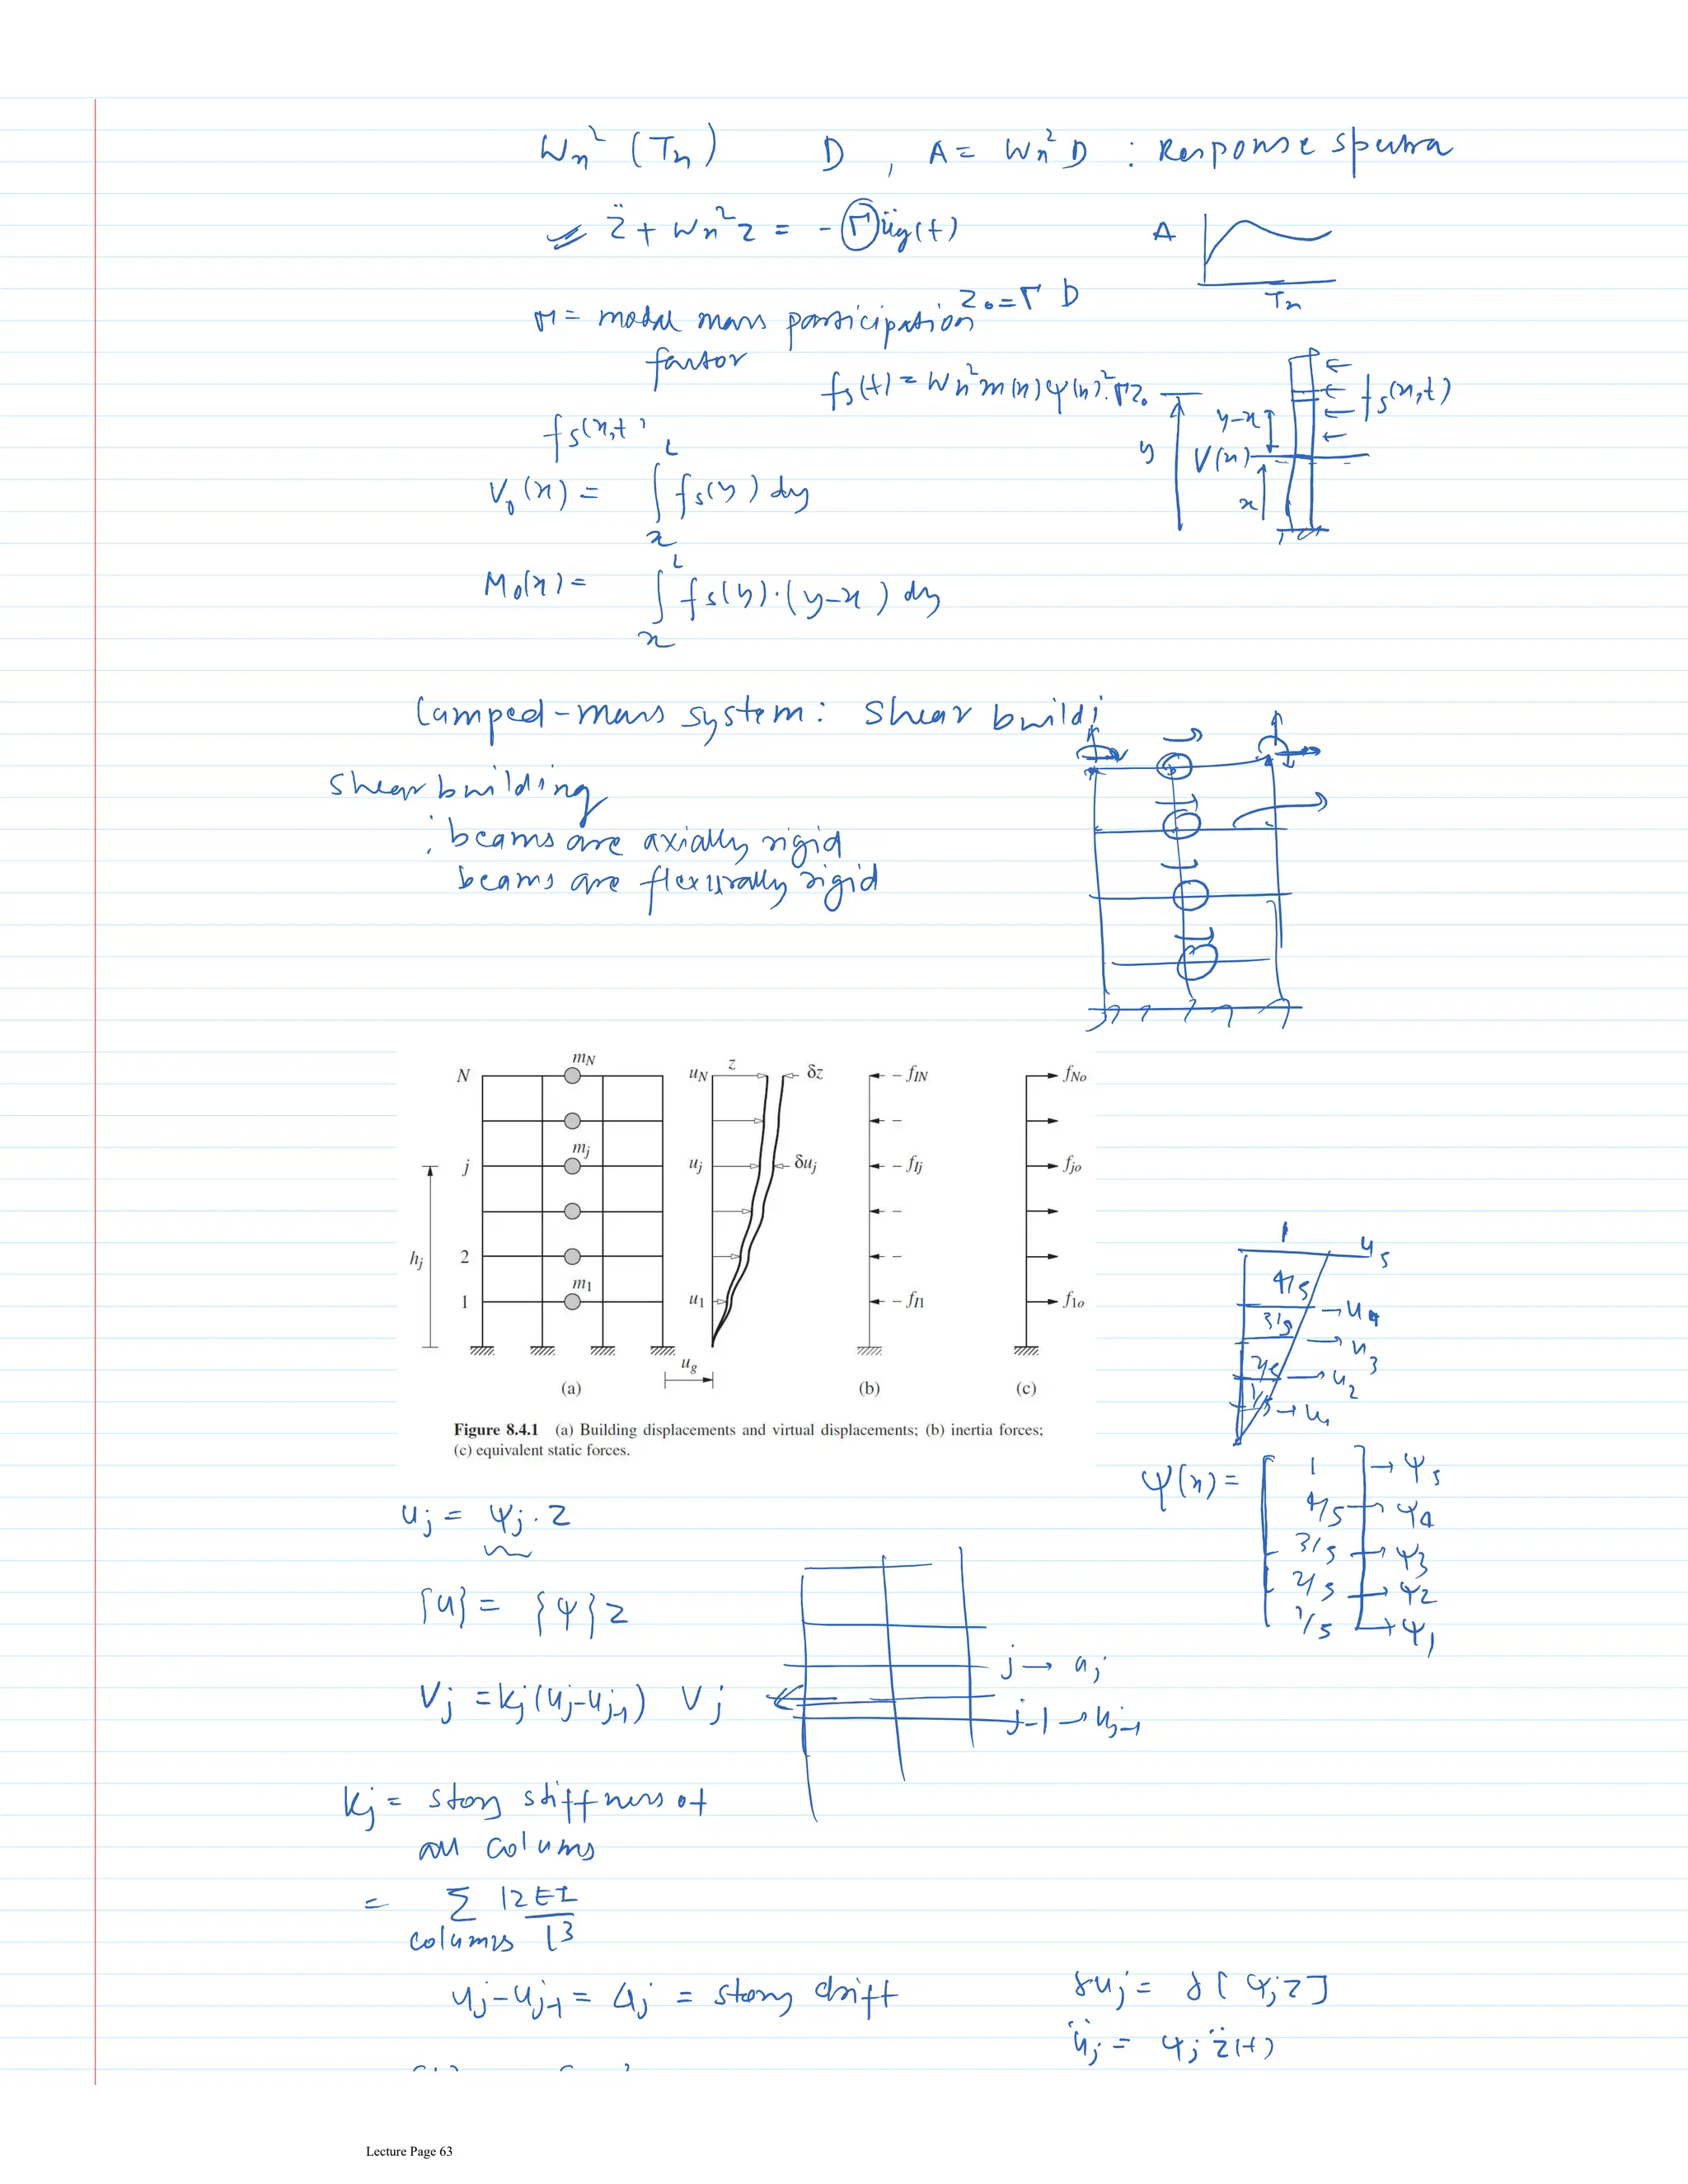 Wn² (Tn) D , A = Wn² D : Response spectra
z̈ + Wn² z = - Γ üg(t)
A
Tn
z₀ = Γ D
Γ = modal mass participation
factor
fs(t) = Wn² m(x) ψ(x)². Γ z₀
fs(x,t)
y-x
fs(x,t)
y
V(x)
x
V₀(x) = ∫ₓᴸ fs(y) dy
M₀(x) = ∫ₓᴸ fs(y)·(y-x) dy
Lumped-mass system: Shear buildi
Shear building
: beams are axially rigid
beams are flexurally rigid
N mN uN z δz - fIN fNo
j mj uj δuj - fIj fjo
hj
2
1 m1 u1 - fI1 f1o
ug
(a) (b) (c)
Figure 8.4.1 (a) Building displacements and virtual displacements; (b) inertia forces;
(c) equivalent static forces.
1 u5
4/5 → u4
3/5 → u3
2/5 → u2
1/5 → u1
ψ(x) = [ 1 ] → ψ5
4/5 → ψ4
3/5 → ψ3
2/5 → ψ2
1/5 → ψ1
uj = ψj . z
{u} = {ψ} z
j → uj
Vj = kj (uj - uj-1) Vj
j-1 → uj-1
kj = story stiffness of
all colums
= Σ 12EI/l³
columns
uj - uj-1 = Δj = story drift
δuj = δ[ψj z]
üj = ψj z̈(t)
Lecture Page 63